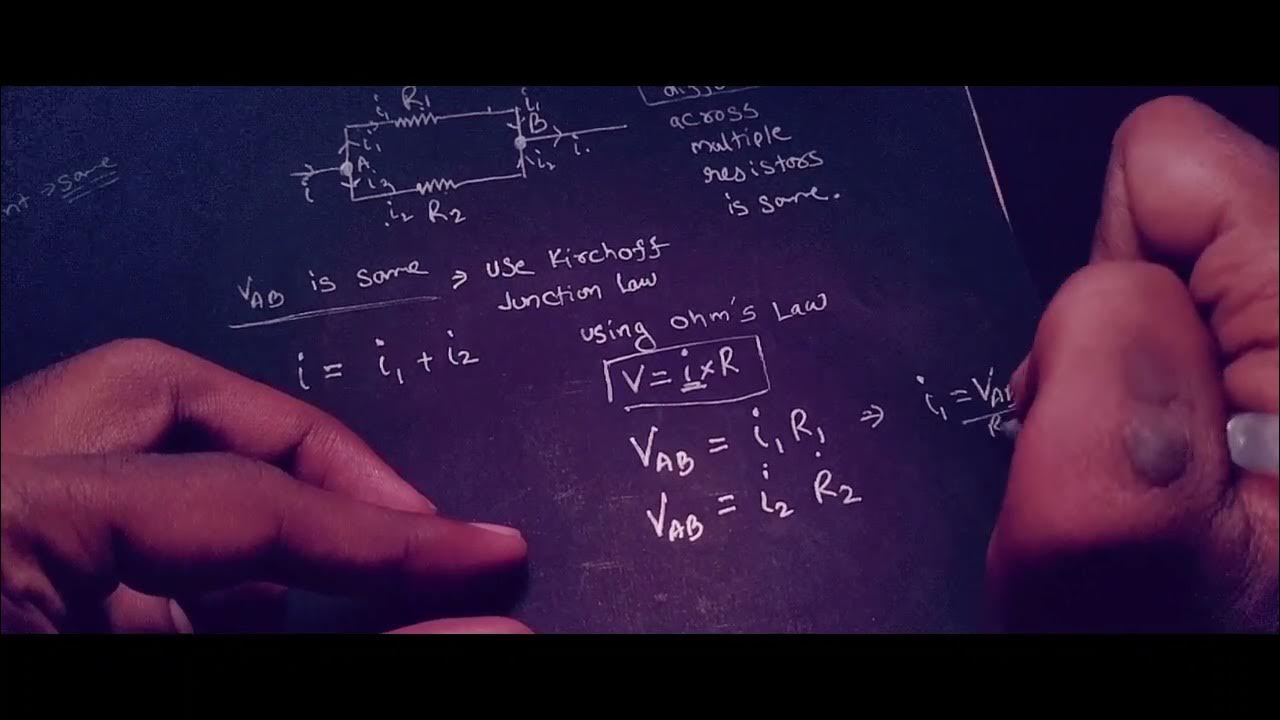 i₁ R₁ i₁
i₁ B
A i₂ i.
i i₂
i₂ R₂
same
across
multiple
resistors
is same.
V_AB is same ⇒ use Kirchoff
Junction law
i = i₁ + i₂
using ohm's Law
V = i × R
V_AB = i₁ R₁ ⇒ i₁ = V_AB
V_AB = i₂ R₂